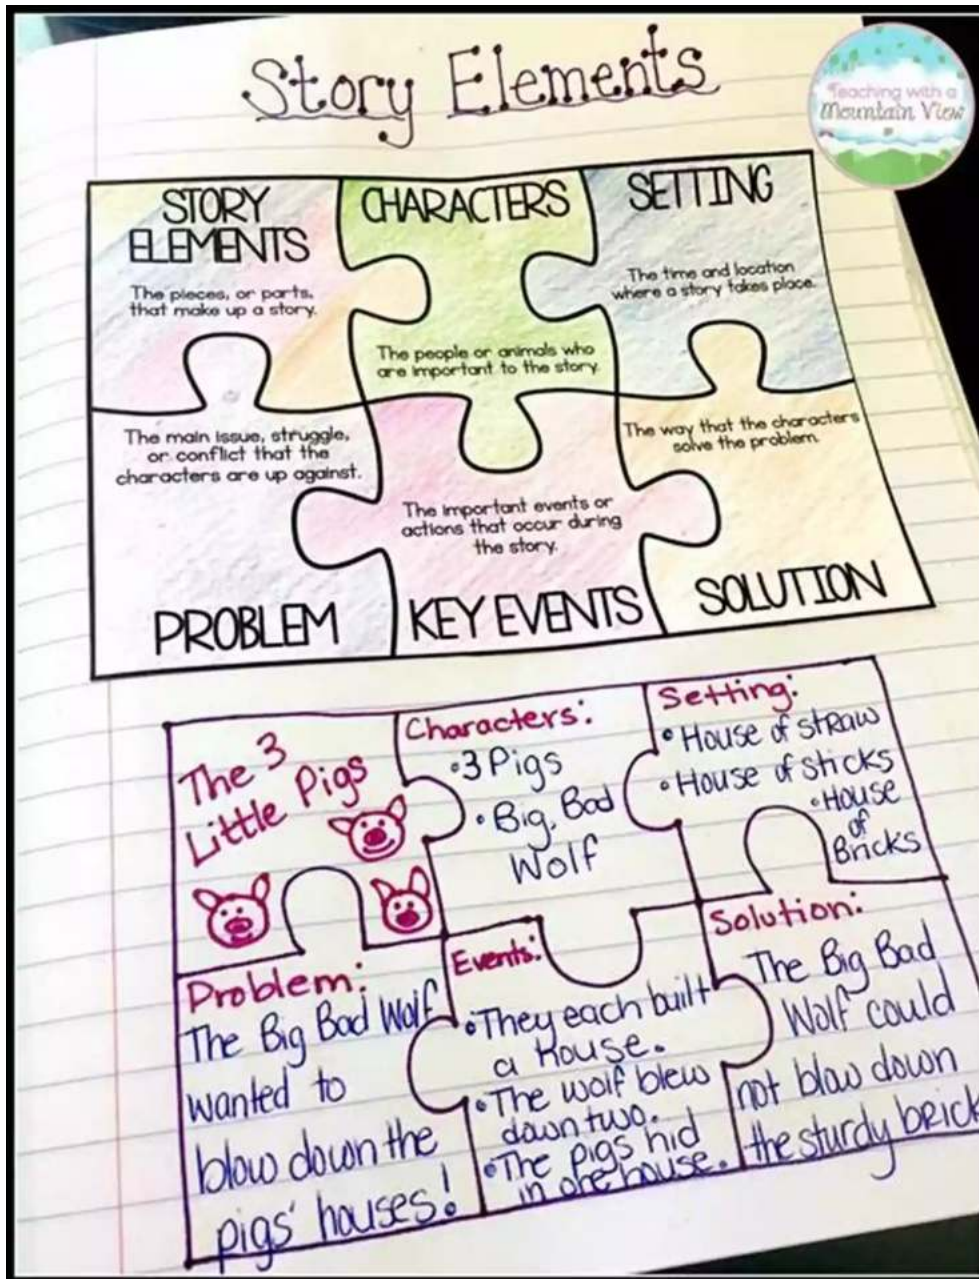 Story Elements
Teaching with a
Mountain View
STORY
ELEMENTS
The pieces, or parts,
that make up a story.
CHARACTERS
The people or animals who
are important to the story.
SETTING
The time and location
where a story takes place.
The main issue, struggle,
or conflict that the
characters are up against.
PROBLEM
The important events or
actions that occur during
the story.
KEY EVENTS
The way that the characters
solve the problem.
SOLUTION
The 3
Little Pigs
Characters:
•3 Pigs
•Big, Bad
Wolf
Setting:
•House of straw
•House of sticks
•House
of
Bricks
Problem:
The Big Bad Wolf
wanted to
blow down the
pigs' houses!
Events:
•They each built
a house.
•The wolf blew
down two.
•The pigs hid
in one house.
Solution:
The Big Bad
Wolf could
not blow down
the sturdy brick